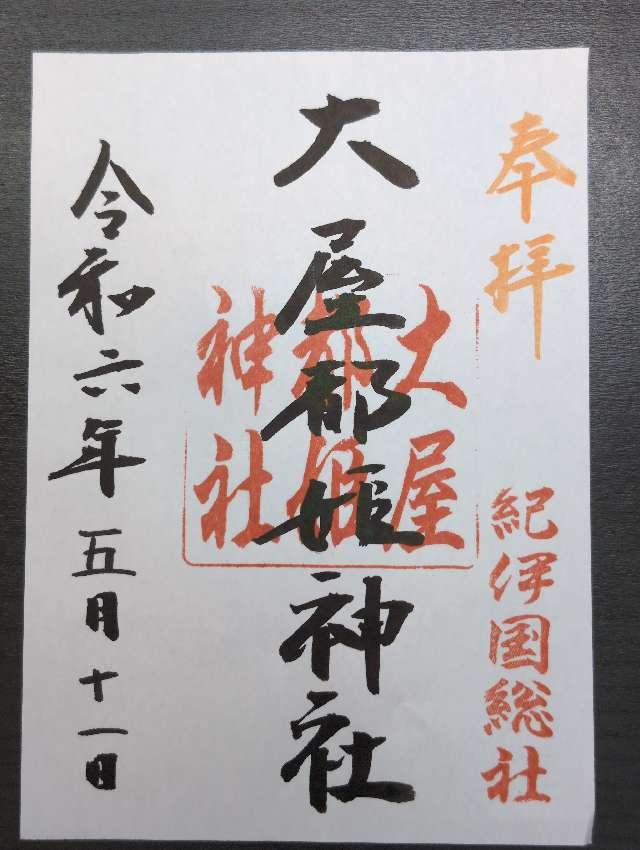 奉拝
紀伊国総社
大屋都姫神社
大屋
都姫
神社
令和六年五月十一日